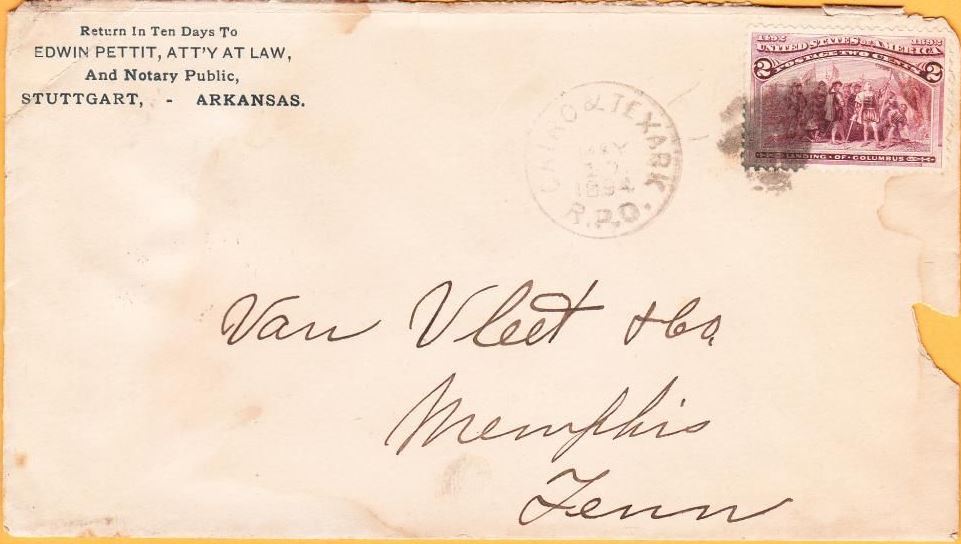 Return In Ten Days To
EDWIN PETTIT, ATT'Y AT LAW,
And Notary Public,
STUTTGART, - ARKANSAS.
1492 1892
UNITED STATES OF AMERICA
POSTAGE TWO CENTS
2 2
LANDING · OF · COLUMBUS
CAIRO & TEXARK
MAY
17
1894
R.P.O.
Van Vleet & Co,
Memphis
Tenn